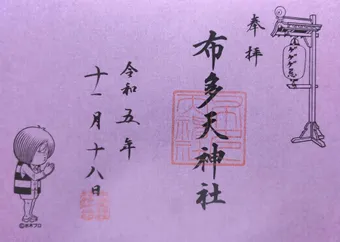 奉拝
布多天神社
令和五年
十一月十八日
ゲゲゲ忌
©水木プロ